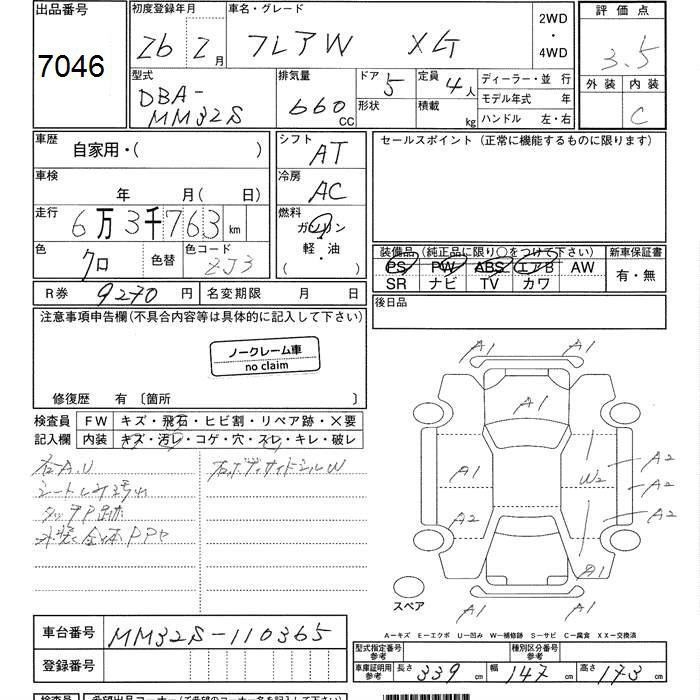 出品番号 初度登録年月 車名・グレード 2WD・4WD 評価点
7046 26年2月 フレアW XG 3.5
外装 内装 C
型式 DBA-MM32S 排気量 660CC ドア 5 形状 定員 4人 積載 kg ディーラー・並行
モデル年式 年
ハンドル 左・右
車歴 自家用・( ) シフト AT セールスポイント (正常に機能するものに限ります)
車検 年 月(日) 冷房 AC
走行 6万3千763km 燃料 ガソリン
軽・油
( )
色 クロ 色替 色コード ZJ3 装備品 (純正品に限り○をつけて下さい) 新車保証書
PS PW ABS エアB AW 有・無
SR ナビ TV カワ
R券 9270円 名変期限 月 日 後日品
注意事項申告欄(不具合内容等は具体的に記入して下さい)
ノークレーム車
no claim
修復歴 有 〔箇所 〕
検査員 FW キズ・飛石・ヒビ割・リペア跡・×要
記入欄 内装 キズ・汚レ・コゲ・穴・スレ・キレ・破レ
右A.U 右ボディサイドシルW
A1 A1
A1
A1 W2 A2
A2 A2
A1
A1 A1
スペア
A-キズ E-エクボ U-凹み W-補修跡 S-サビ C-腐食 XX-交換済
車台番号 MM32S-110365
登録番号
型式指定番号 参考 種別区分番号 参考
車庫証明用 参考 長さ 339cm 幅 147cm 高さ 173cm
検査員 希望出品コーナー(ご希望のコーナー名を記入